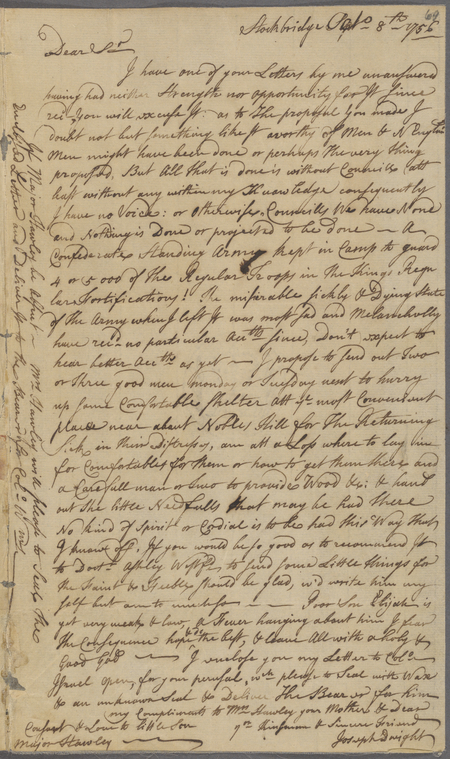 69
Stockbridge Octo 8th 1756
Dear Sr
I have one of your Letters by me unanswered
having had neither Strength nor opportunity for it Since
rec'd You will excuse It. as to The proposal You made I
doubt not but Something like It worthy of Men & N England
Men might have been done or perhaps The very thing
proposed, But All that is done is without Councils att
least without any within my Knowledge consequently
I have no Voice: or otherwise Councills We have None
and Nothing is Done or projected to be done — A
Confederate Standing Army kept in Camp to guard
4 or 5000 of the Regular Troops in the Kings Regu
lar Fortifications! The miserable sickly & Dying State
of the Army when I left It was most sad and Melancholly
have recd no particular Accts Since, Don't expect to
hear better Accts as yet — I propose to Send out Two
or Three good men monday or Tuesday next to hurry
up Some Comfortable Shelter att ye most Convenient
place near about Nobles Hill for The Returning
Sick in their distresses, am att a Loss where to lay in
for Comfortables for them or how to get them there and
a Carefull man or two to provide Wood &c: & hand
out the little Needfulls that may be had there
No kind of Spirit or Cordial is to be had this Way that
I know of. If you would be so good as to recommend It
to Doctr Ashley to Send some Little things for
the Faint & Feeble should be glad, I'd write him my
self but am to much — Poor Son Elijah is
yet very weak & low, a Fever hanging about him I fear
the Consequence hope the best, & leave All with a holy &
Good God — I inclose you my Letter to Colo
Israel for your perusal, pleas to Seal with Wax
& an unknown Seal & Deliver The Bearer for him
my Compliments to Mrs Hawley your Mother & Dear
Consort & Love to little Son
yr Kinsman & Sincere Friend
Major Hawley —
Joseph Dwight
If Major Hawley be absent — Mrs Hawley will please to Seal the
inclosed Letter and Deliver It to the Colo Wm